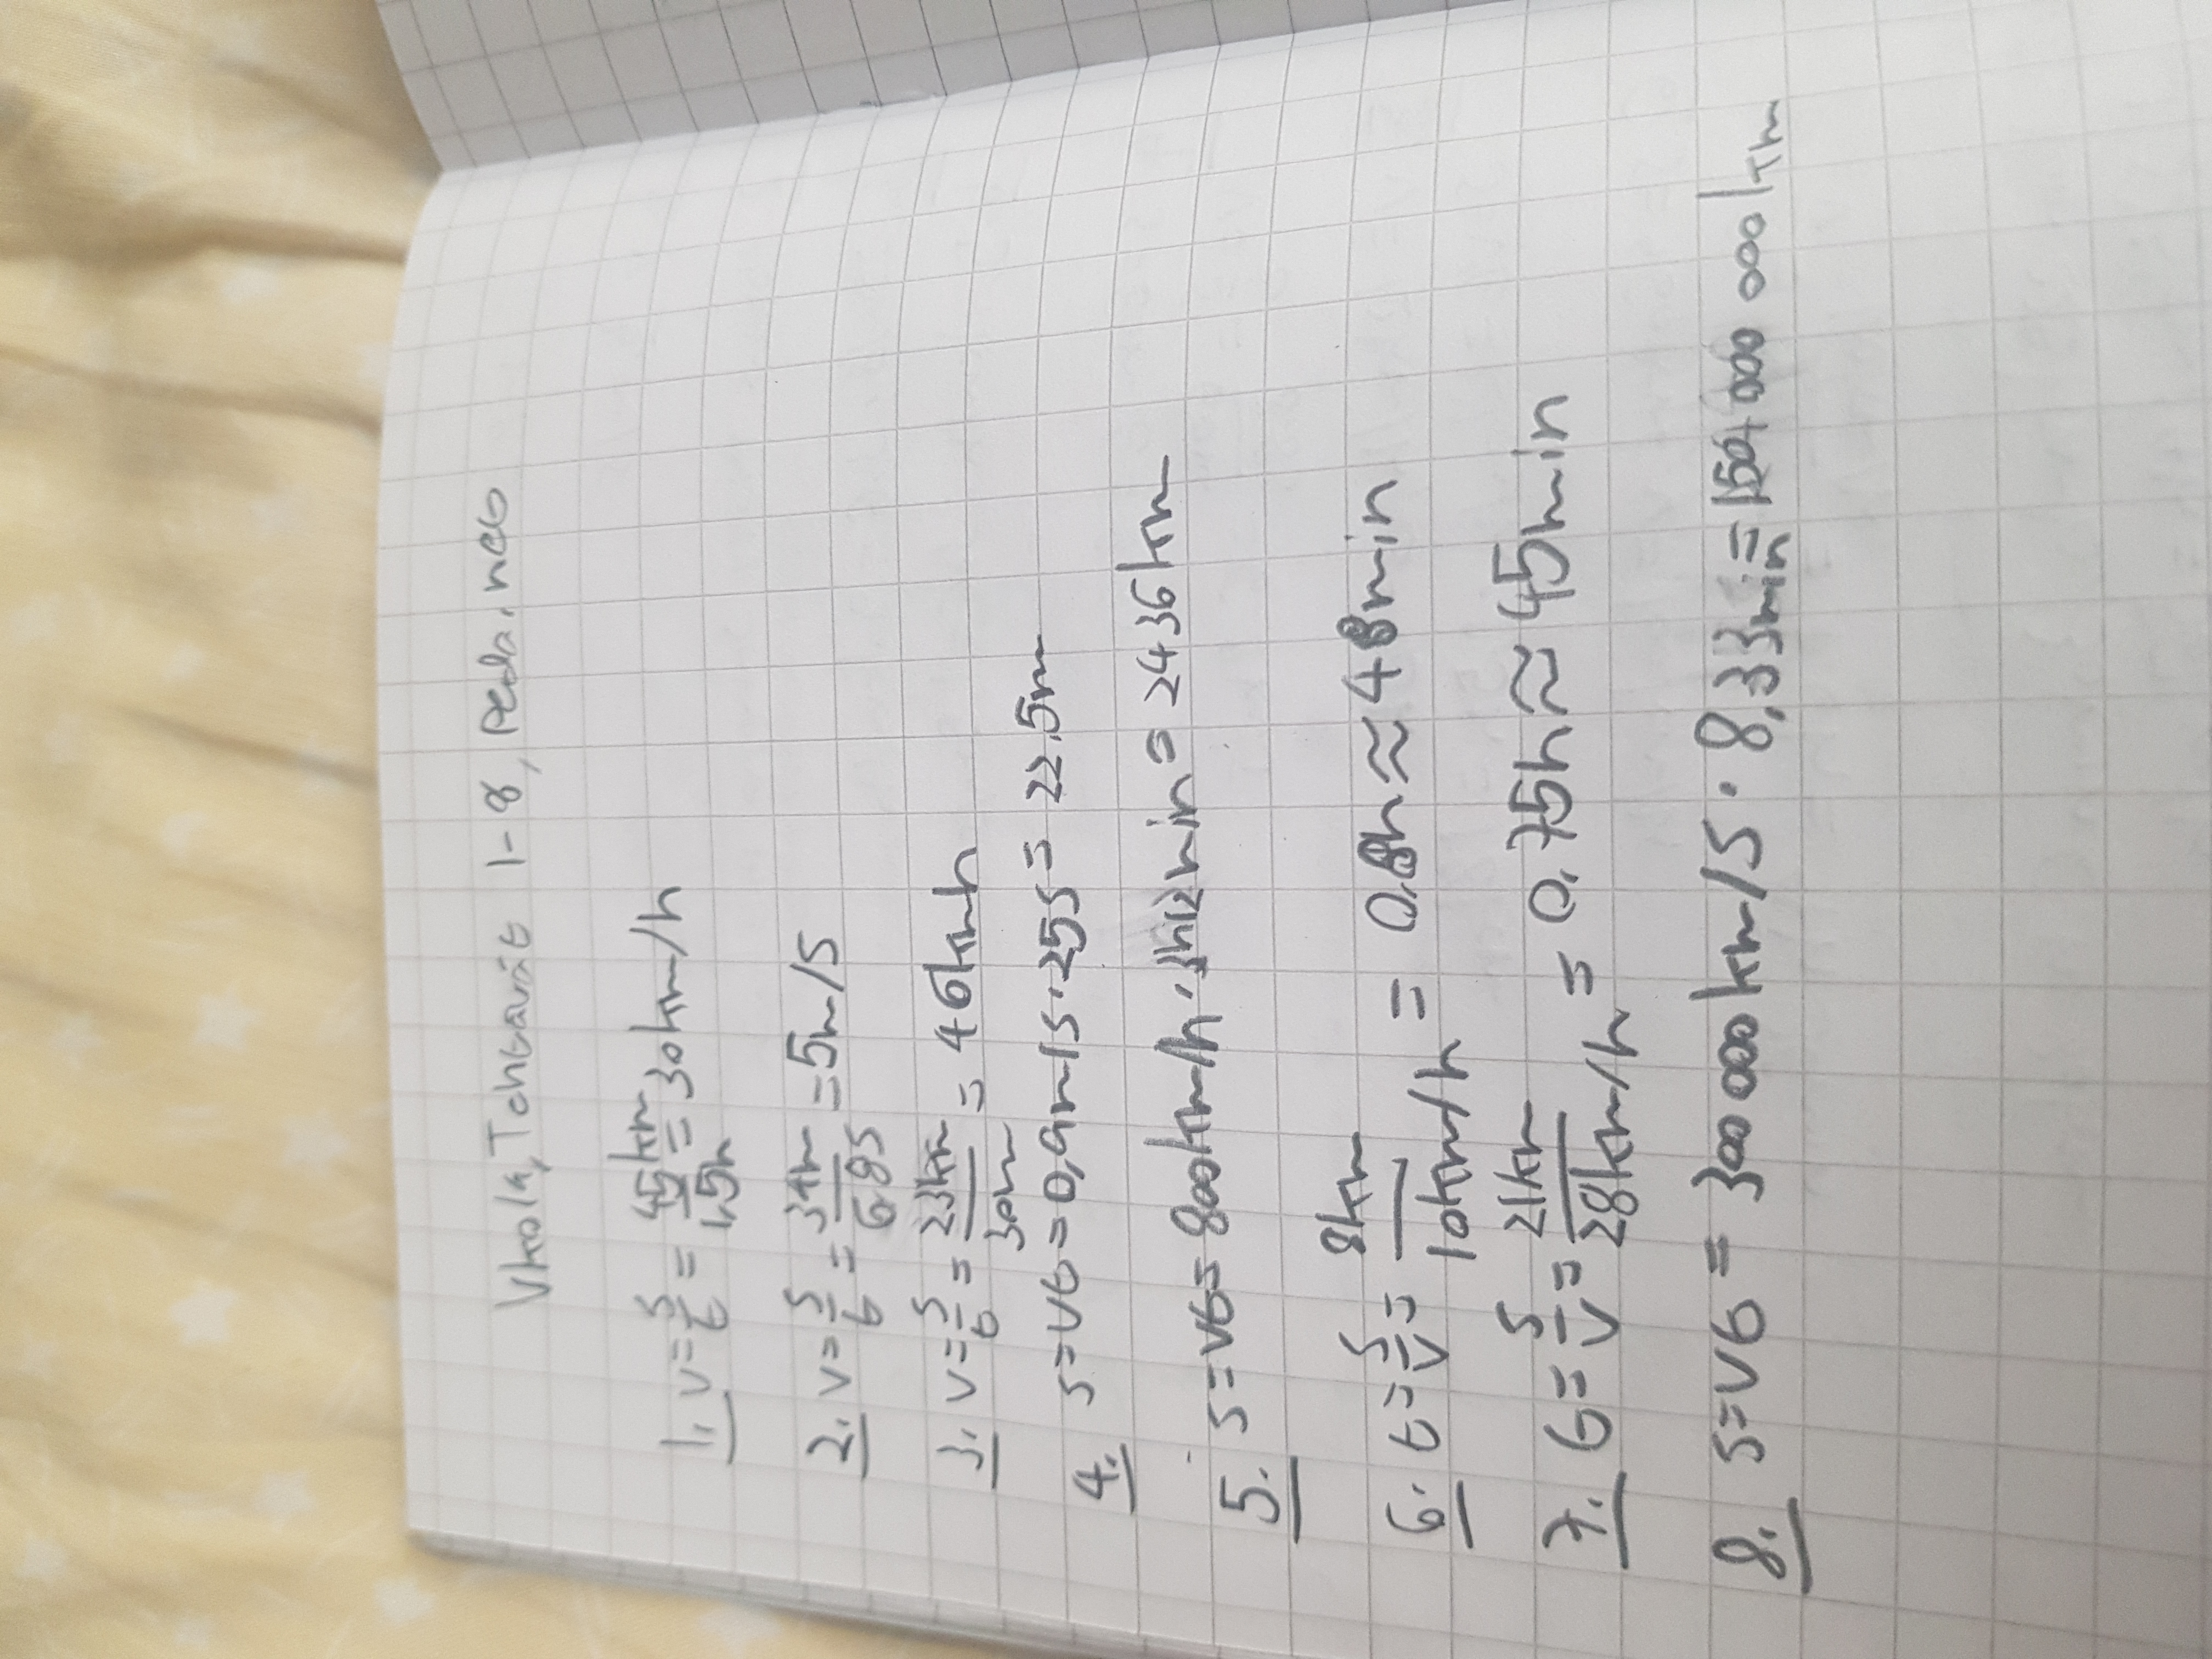 Vkola, Tehtävät 1-8, Peda.net
1. v = s/t = 45km/1,5h = 30km/h
2. v = s/t = 34m/6,8s = 5m/s
3. v = s/t = 23km/30m = 46kmh
4. s = vt = 0,9m/s · 25s = 22,5m
5. s = vt = 800km/h · 3h12min = 2436km
6. t = s/v = 8km/10km/h = 0,8h ≈ 48min
7. t = s/v = 21km/28km/h = 0,75h ≈ 45min
8. s = vt = 300 000km/s · 8,33min = 150 000 000km